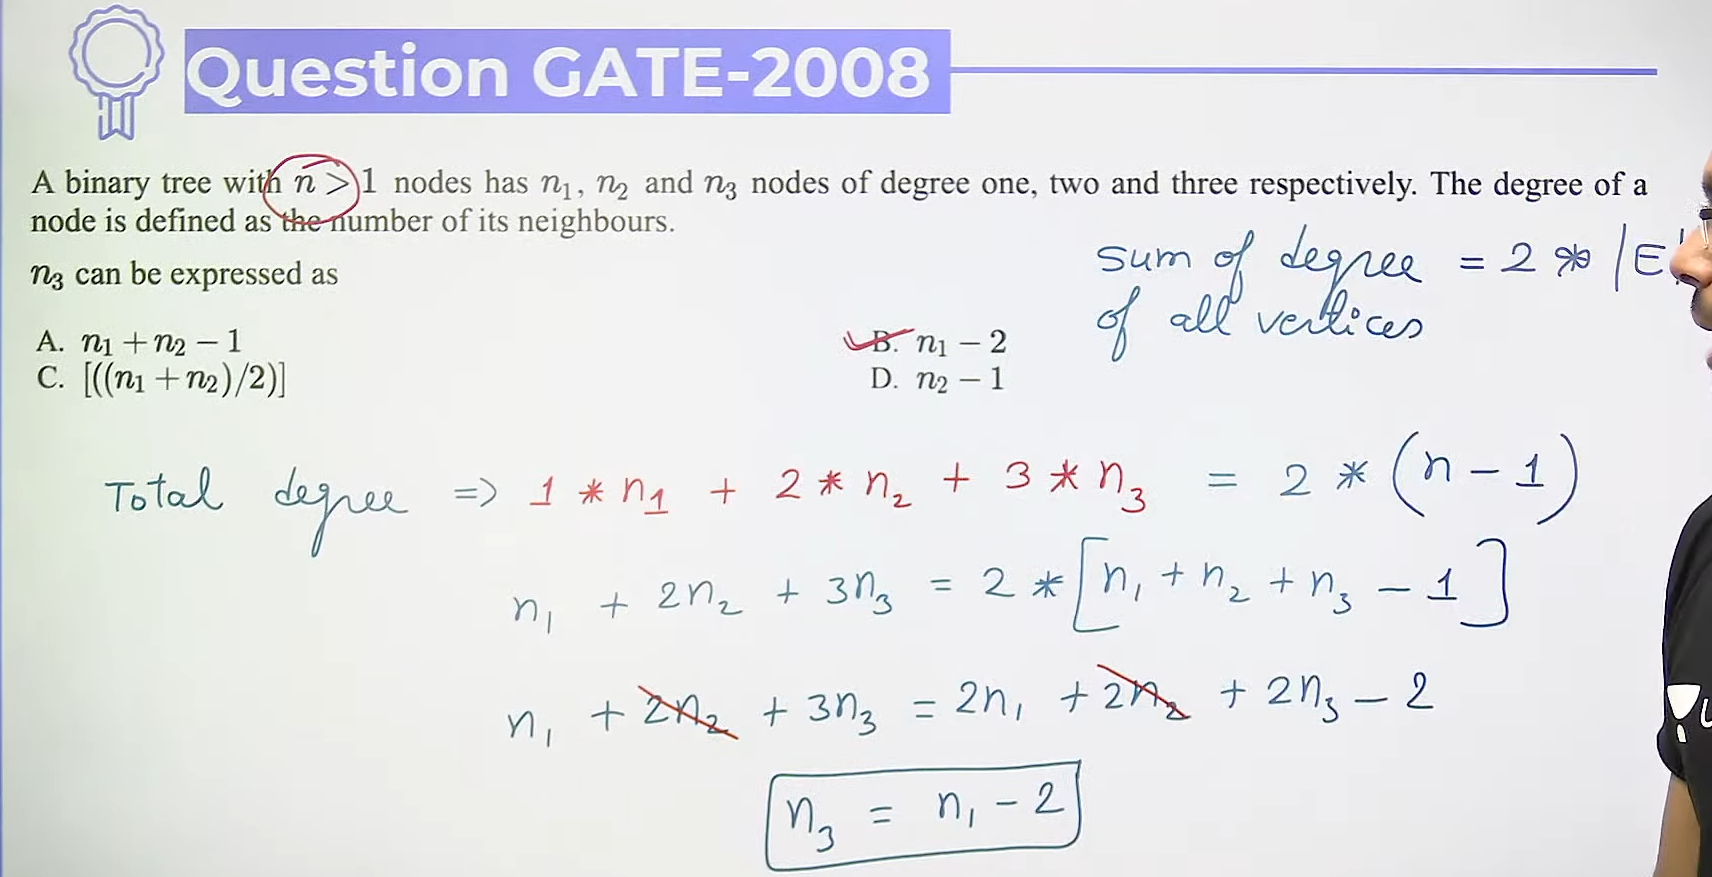 Question GATE-2008
A binary tree with n > 1 nodes has n₁, n₂ and n₃ nodes of degree one, two and three respectively. The degree of a
node is defined as the number of its neighbours.
n₃ can be expressed as
A. n₁ + n₂ − 1
B. n₁ − 2
C. [((n₁ + n₂)/2)]
D. n₂ − 1
Sum of degree = 2 * |E|
of all vertices
Total degree => 1 * n₁ + 2 * n₂ + 3 * n₃ = 2 * (n − 1)
n₁ + 2n₂ + 3n₃ = 2 * [n₁ + n₂ + n₃ − 1]
n₁ + 2n₂ + 3n₃ = 2n₁ + 2n₂ + 2n₃ − 2
n₃ = n₁ − 2